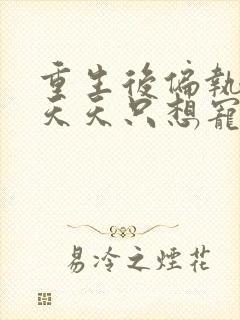 重生後偏執
天天只想寵
易冷之煙花